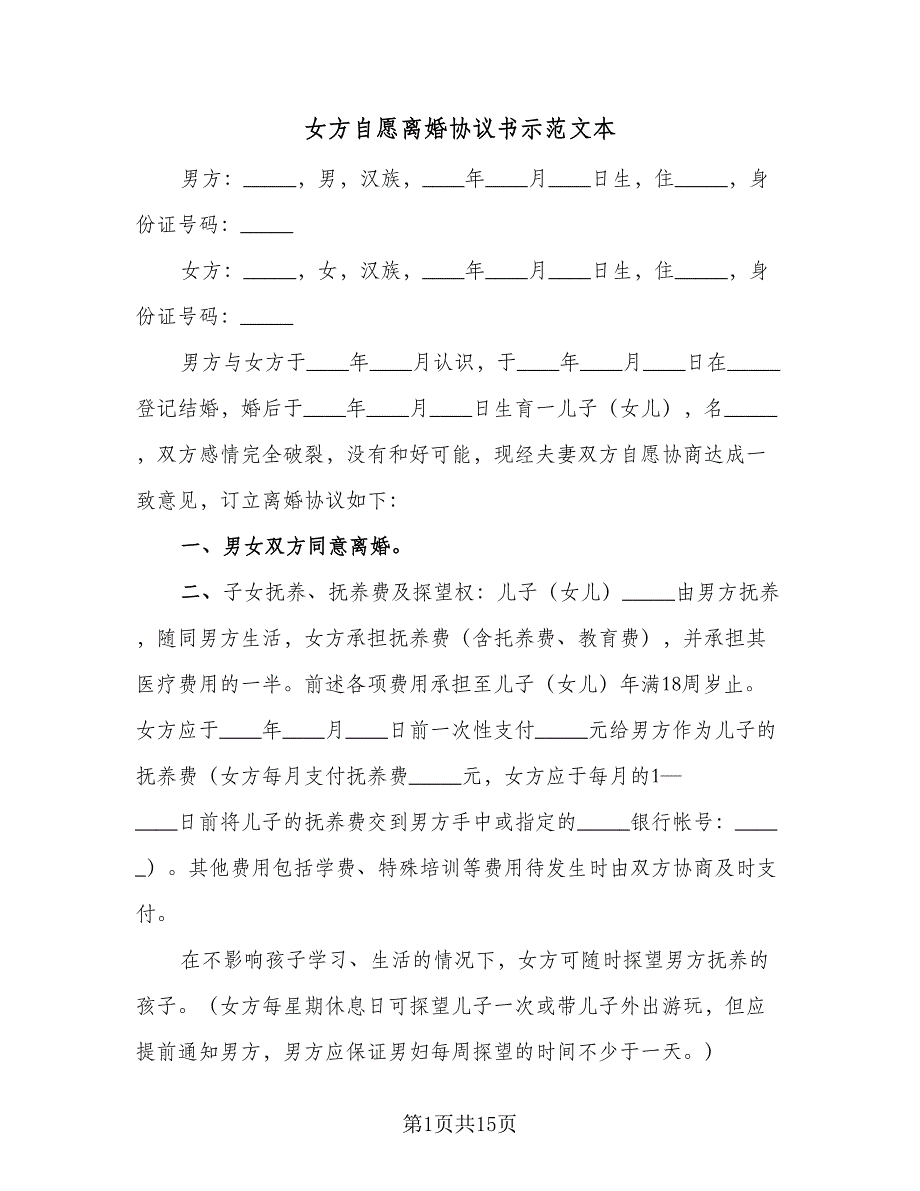 女方自愿离婚协议书示范文本
男方：_____，男，汉族，____年____月____日生，住_____，身
份证号码：_____
女方：_____，女，汉族，____年____月____日生，住_____，身
份证号码：_____
男方与女方于____年____月认识，于____年____月____日在_____
登记结婚，婚后于____年____月____日生育一儿子（女儿），名_____
，双方感情完全破裂，没有和好可能，现经夫妻双方自愿协商达成一
致意见，订立离婚协议如下：
一、男女双方同意离婚。
二、子女抚养、抚养费及探望权：儿子（女儿）_____由男方抚养
，随同男方生活，女方承担抚养费（含托养费、教育费），并承担其
医疗费用的一半。前述各项费用承担至儿子（女儿）年满18周岁止。
女方应于____年____月____日前一次性支付_____元给男方作为儿子的
抚养费（女方每月支付抚养费_____元，女方应于每月的1—
____日前将儿子的抚养费交到男方手中或指定的_____银行帐号：____
_）。其他费用包括学费、特殊培训等费用待发生时由双方协商及时支
付。
在不影响孩子学习、生活的情况下，女方可随时探望男方抚养的
孩子。（女方每星期休息日可探望儿子一次或带儿子外出游玩，但应
提前通知男方，男方应保证男妇每周探望的时间不少于一天。）
第1页共15页